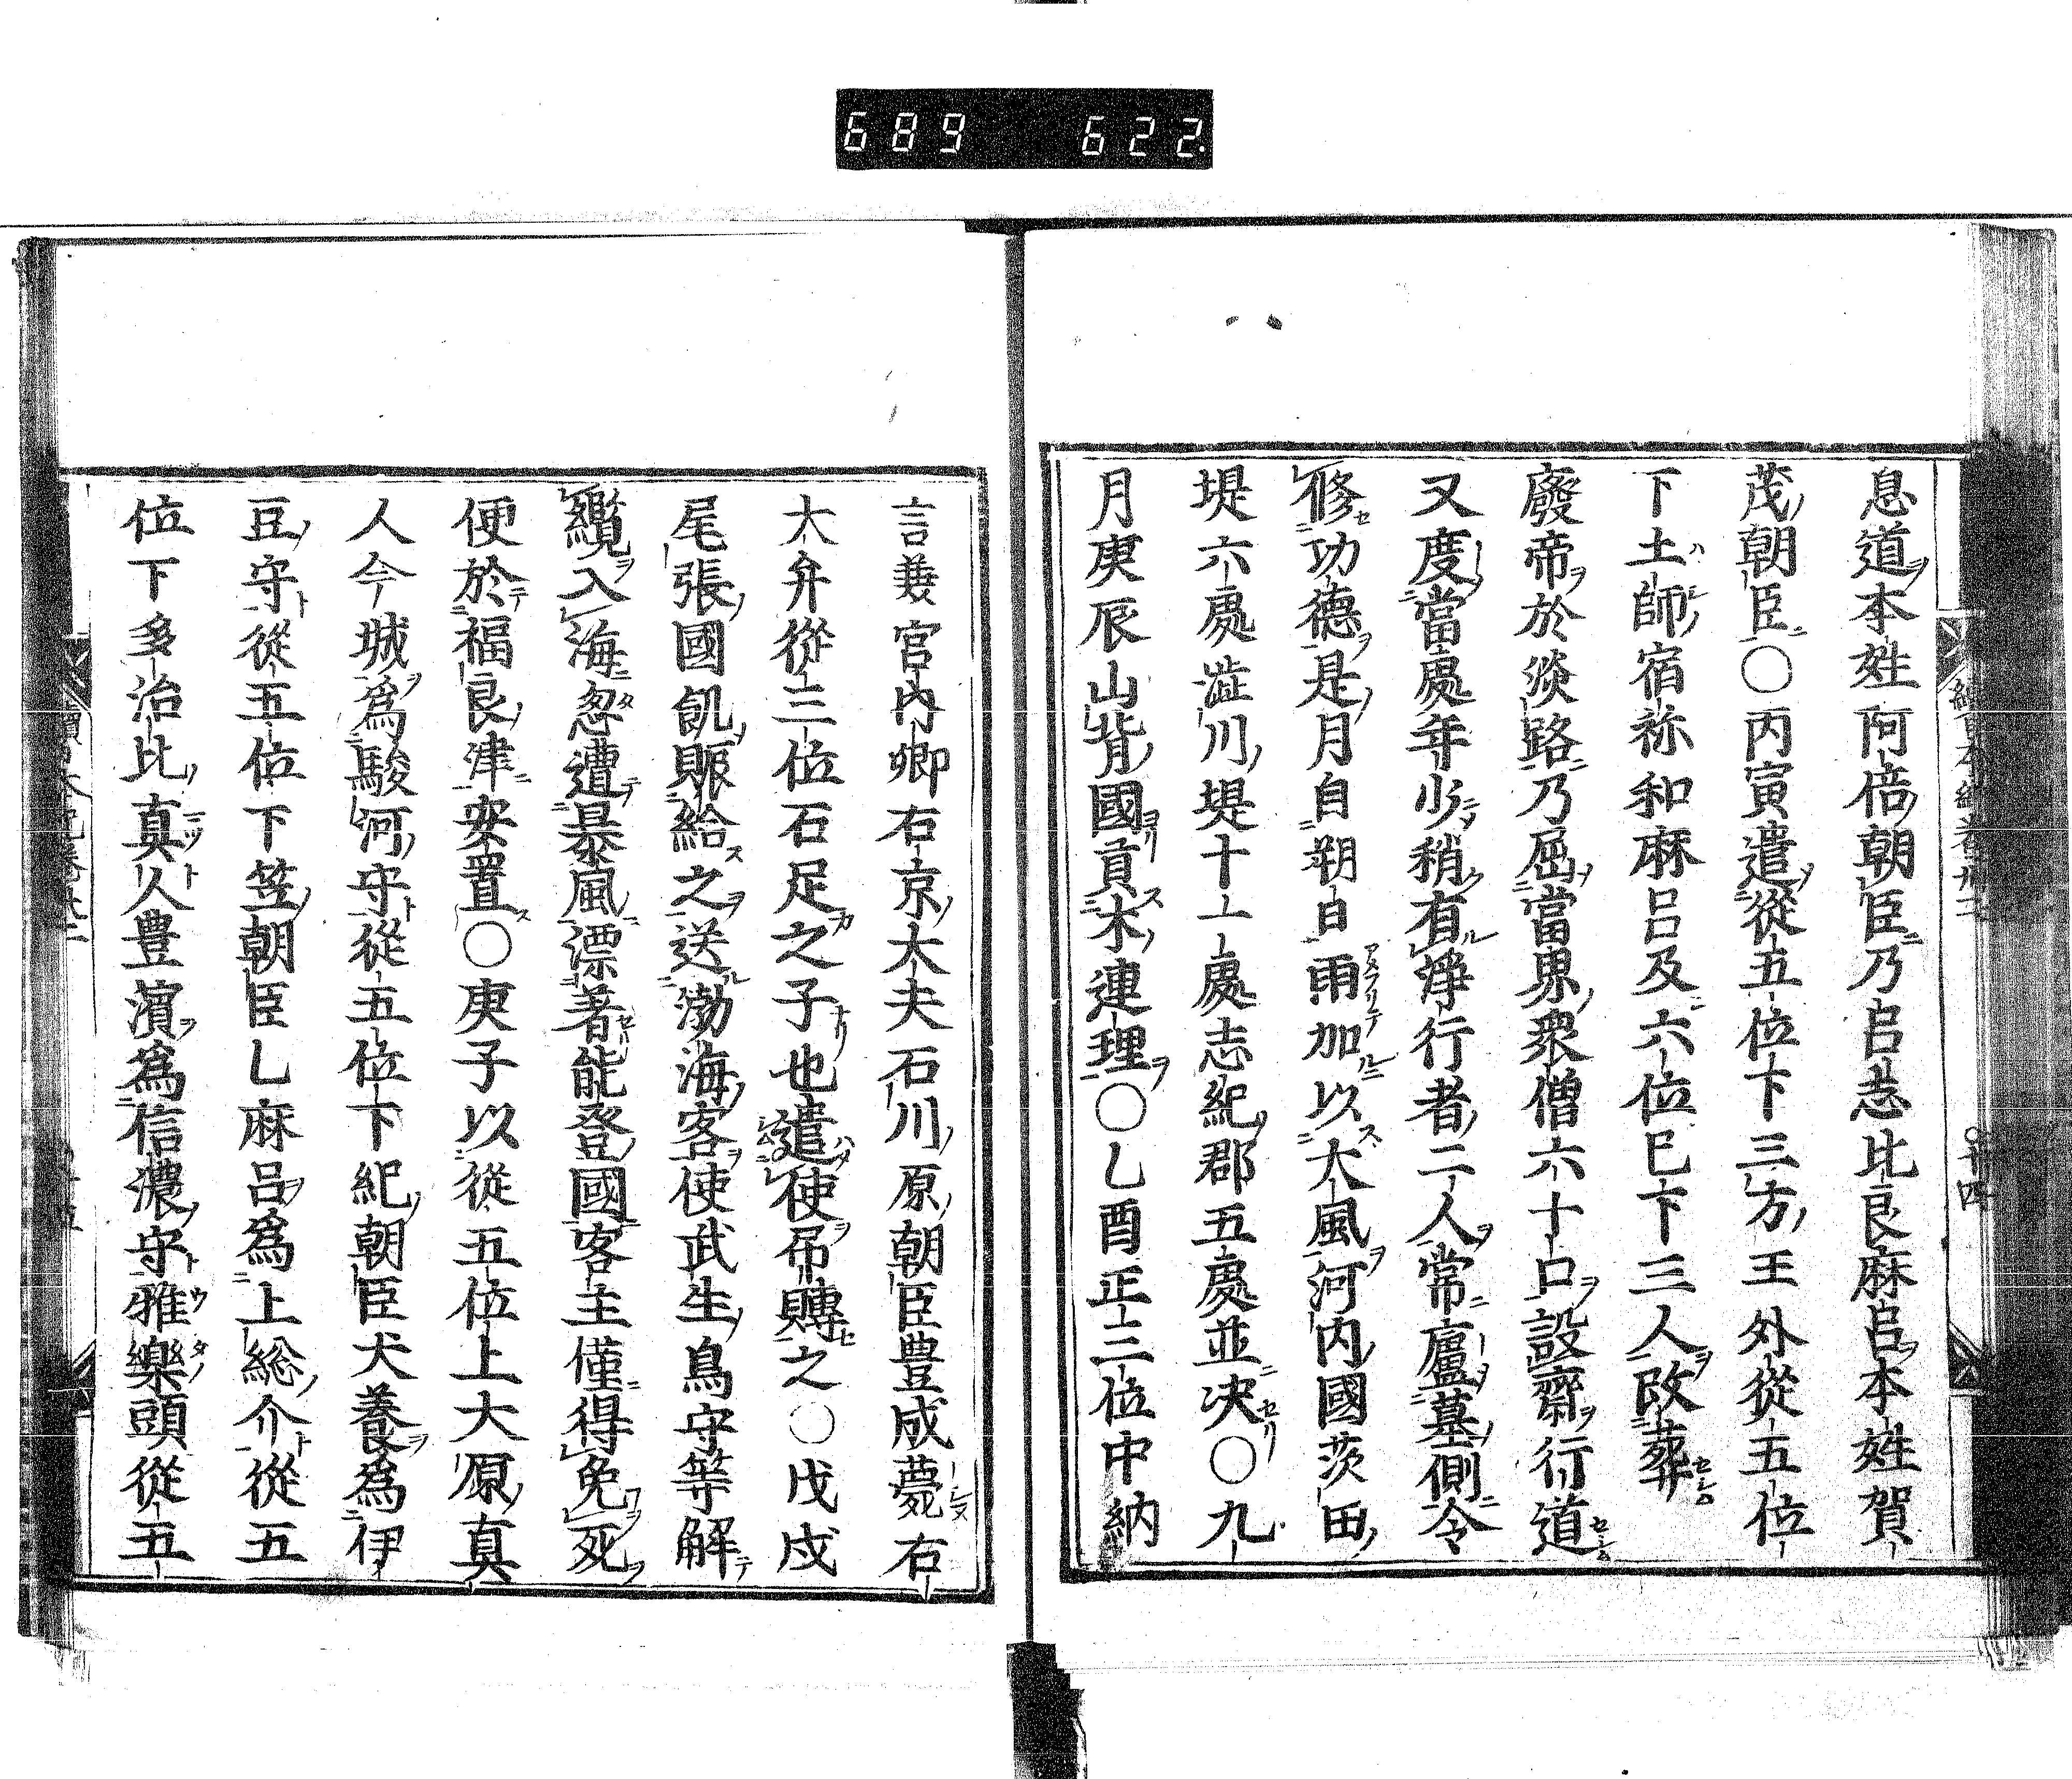 689 622.
續日本紀卷卅二
廿四
息道本姓阿倍朝臣乃呂志比良麻呂本姓賀
茂朝臣〇丙寅遣從五位下三方王外從五位
下土師宿祢和麻呂及六位已下三人改葬
廢帝於淡路乃屈當界衆僧六十口設齋行道
又度當處年少稍有淨行者二人常廬墓側令
修功德是月自朔日雨加以大風河內國茨田
堤六處澁川堤十一處志紀郡五處並决〇九
月庚辰山背國貢木連理〇乙酉正三位中納
言兼宮內卿右京大夫石川原朝臣豊成薨右
大弁從三位石足之子也遣使吊賻之〇戊戌
尾張國飢賑給之送渤海客使武生鳥守等解
纜入海忽遭暴風漂著能登國客主僅得免死
便於福良津安置〇庚子以從五位上大原真
人今城爲駿河守從五位下紀朝臣犬養爲伊
豆守從五位下笠朝臣乙麻呂爲上総介從五
位下多治比真人豊濱爲信濃守雅樂頭從五